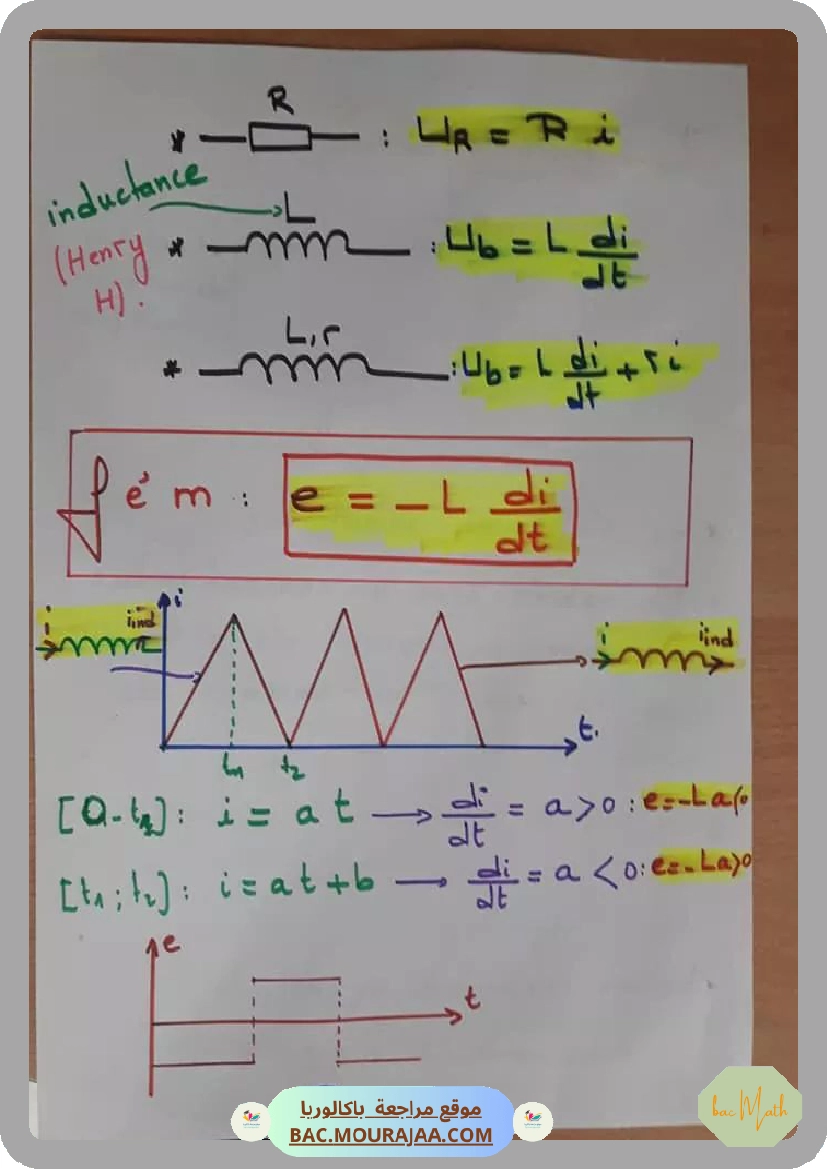 R
* : U_R = R i
inductance
(Henry H).
L
* : U_b = L di/dt
L, r
* : U_b = L di/dt + r i
f é m : e = - L di/dt
i i_ind
i
i i_ind
t.
t_1 t_2
[0 - t_1] : i = a t → di/dt = a > 0 : e = - L a < 0
[t_1 ; t_2] : i = a t + b → di/dt = a < 0 : e = - L a > 0
e
t
موقع مراجعة باكالوريا
BAC.MOURAJAA.COM
bac Math